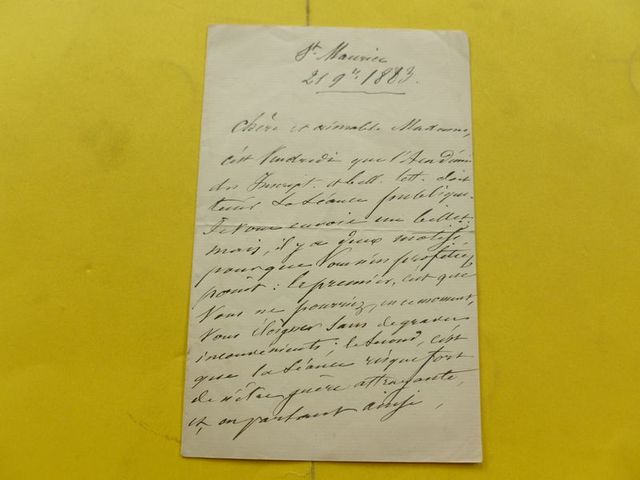 St. Maurice
21 9bre 1883.
Chère et aimable Madame,
c'est Vendredi que l'Académie
des Inscript. et bell. lett. doit
tenir sa séance publique.
Je vous envoie un billet;
mais, il y a deux motifs,
pour que Vous n'en profitiez
point: le premier, c'est que
Vous ne pourriez, en ce moment,
Vous éloigner sans de graves
inconvénients; le second, c'est
que la séance risque fort
de n'être guère attrayante,
et, en parlant ainsi,